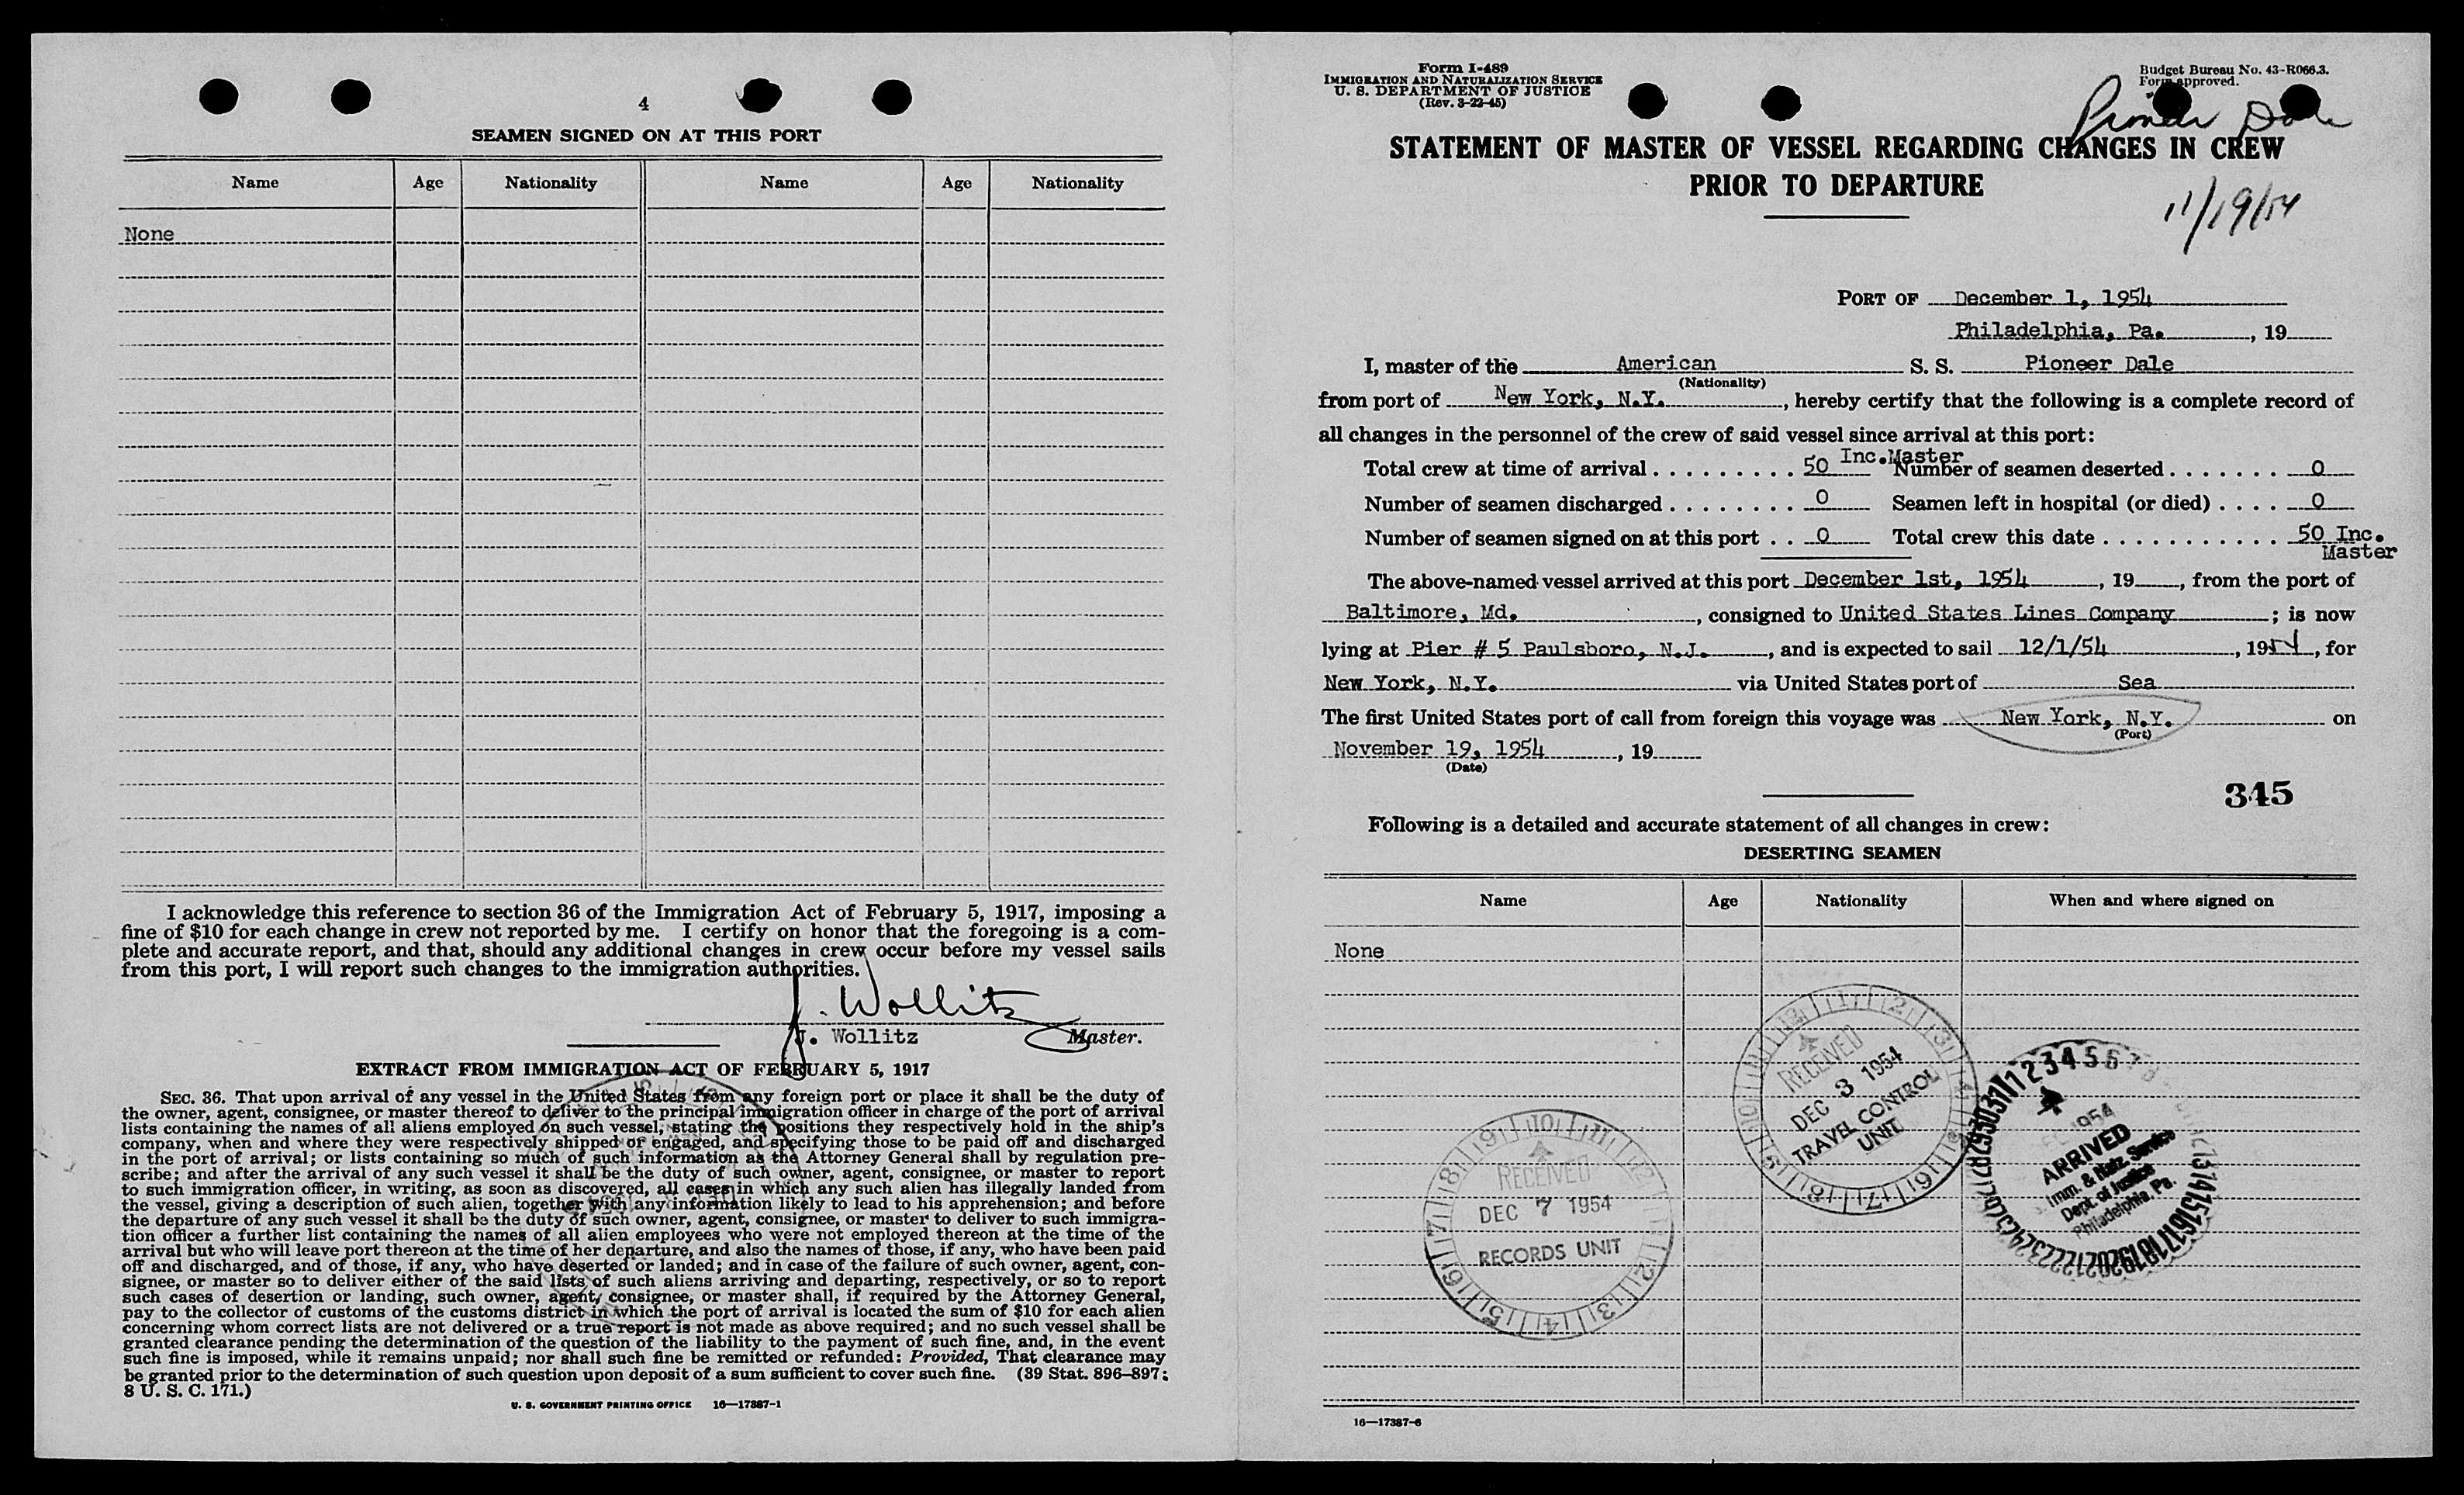 4
SEAMEN SIGNED ON AT THIS PORT
Name Age Nationality Name Age Nationality
None
I acknowledge this reference to section 36 of the Immigration Act of February 5, 1917, imposing a
fine of $10 for each change in crew not reported by me. I certify on honor that the foregoing is a com-
plete and accurate report, and that, should any additional changes in crew occur before my vessel sails
from this port, I will report such changes to the immigration authorities.
J. Wollitz
J. Wollitz Master.
EXTRACT FROM IMMIGRATION ACT OF FEBRUARY 5, 1917
SEC. 36. That upon arrival of any vessel in the United States from any foreign port or place it shall be the duty of
the owner, agent, consignee, or master thereof to deliver to the principal immigration officer in charge of the port of arrival
lists containing the names of all aliens employed on such vessel, stating the positions they respectively hold in the ship's
company, when and where they were respectively shipped or engaged, and specifying those to be paid off and discharged
in the port of arrival; or lists containing so much of such information as the Attorney General shall by regulation pre-
scribe; and after the arrival of any such vessel it shall be the duty of such owner, agent, consignee, or master to report
to such immigration officer, in writing, as soon as discovered, all cases in which any such alien has illegally landed from
the vessel, giving a description of such alien, together with any information likely to lead to his apprehension; and before
the departure of any such vessel it shall be the duty of such owner, agent, consignee, or master to deliver to such immigra-
tion officer a further list containing the names of all alien employees who were not employed thereon at the time of the
arrival but who will leave port thereon at the time of her departure, and also the names of those, if any, who have been paid
off and discharged, and of those, if any, who have deserted or landed; and in case of the failure of such owner, agent, con-
signee, or master so to deliver either of the said lists of such aliens arriving and departing, respectively, or so to report
such cases of desertion or landing, such owner, agent, consignee, or master shall, if required by the Attorney General,
pay to the collector of customs of the customs district in which the port of arrival is located the sum of $10 for each alien
concerning whom correct lists are not delivered or a true report is not made as above required; and no such vessel shall be
granted clearance pending the determination of the question of the liability to the payment of such fine, and, in the event
such fine is imposed, while it remains unpaid; nor shall such fine be remitted or refunded: Provided, That clearance may
be granted prior to the determination of such question upon deposit of a sum sufficient to cover such fine. (39 Stat. 896–897;
8 U. S. C. 171.)
U. S. GOVERNMENT PRINTING OFFICE 16—17387-1
Form I-489
IMMIGRATION AND NATURALIZATION SERVICE
U. S. DEPARTMENT OF JUSTICE
(Rev. 3-22-45)
Budget Bureau No. 43-R066.3.
Form approved.
Pioneer Dale
STATEMENT OF MASTER OF VESSEL REGARDING CHANGES IN CREW
PRIOR TO DEPARTURE
11/19/54
PORT OF December 1, 1954
Philadelphia, Pa. , 19
I, master of the American S. S. Pioneer Dale
(Nationality)
from port of New York, N.Y. , hereby certify that the following is a complete record of
all changes in the personnel of the crew of said vessel since arrival at this port:
Total crew at time of arrival . . . . . . . . . 50 Inc.Master Number of seamen deserted . . . . . . . 0
Number of seamen discharged . . . . . . . . 0 Seamen left in hospital (or died) . . . . 0
Number of seamen signed on at this port . . 0 Total crew this date . . . . . . . . . . . 50 Inc.
Master
The above-named vessel arrived at this port December 1st, 1954 , 19 , from the port of
Baltimore, Md. , consigned to United States Lines Company ; is now
lying at Pier # 5 Paulsboro, N.J. , and is expected to sail 12/1/54 , 1954 , for
New York, N.Y. via United States port of Sea
The first United States port of call from foreign this voyage was New York, N.Y. on
(Port)
November 19, 1954 , 19
(Date)
345
Following is a detailed and accurate statement of all changes in crew:
DESERTING SEAMEN
Name Age Nationality When and where signed on
None
RECEIVED
DEC 3 1954
TRAVEL CONTROL
UNIT
RECEIVED
DEC 7 1954
RECORDS UNIT
1954
ARRIVED
Imm. & Natz. Service
Dept. of Justice
Philadelphia, Pa.
16—17387-6